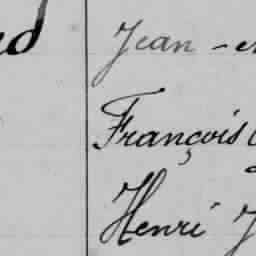 Jean
François
Henri